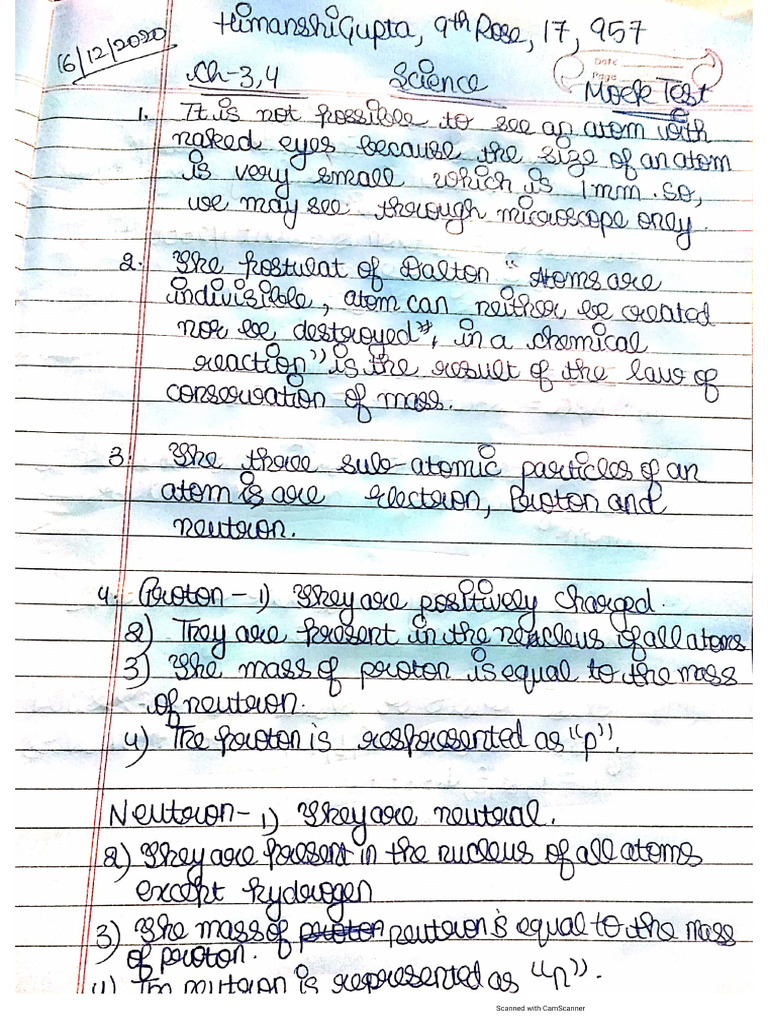 Himanshi Gupta, 9th Rose, 17, 957
16/12/2020
Date
Page
Ch-3,4 Science Mock Test
1. It is not possible to see an atom with
naked eyes because the size of an atom
is very small which is 1mm. so,
we may see through microscope only.
2. The postulat of Dalton "Atoms are
indivisible, atom can neither be created
nor be destroyed", in a chemical
reaction" is the result of the law of
conservation of mass.
3. The three sub-atomic particles of an
atom is are electron, Proton and
neutron.
4. Proton - 1) They are positively charged.
2) They are present in the nucleus of all atoms
3) The mass of proton is equal to the mass
of neutron.
4) The proton is respresented as "p".
Neutron - 1) They are neutral.
2) They are present in the nucleus of all atoms
except hydrogen
3) The mass of proton neutron is equal to the mass
of proton.
4) The nutron is represented as "n".
Scanned with CamScanner